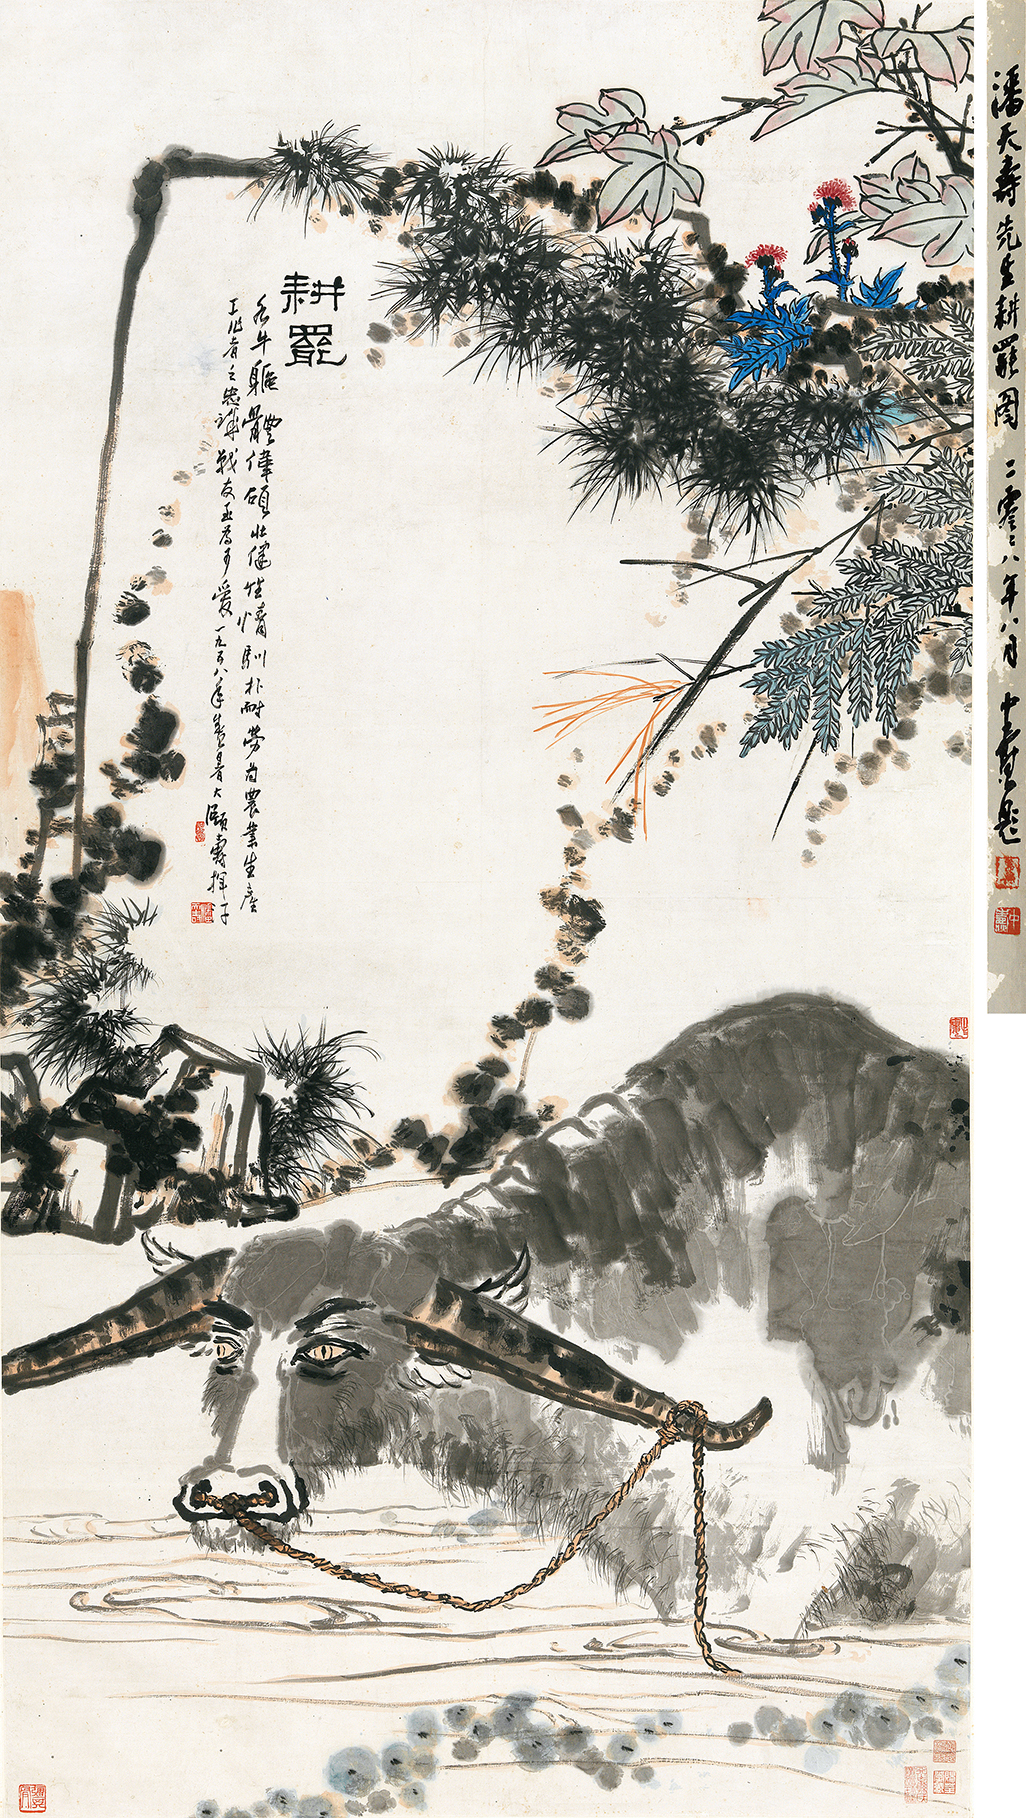 耕罷
水牛軀體偉碩壯健性情馴朴耐勞為農業生產
工作者之忠誠戰友至為可愛一九五八年盛暑大頤壽揮汗
潘天壽先生耕罷圖 二零零八年八月 中燾題